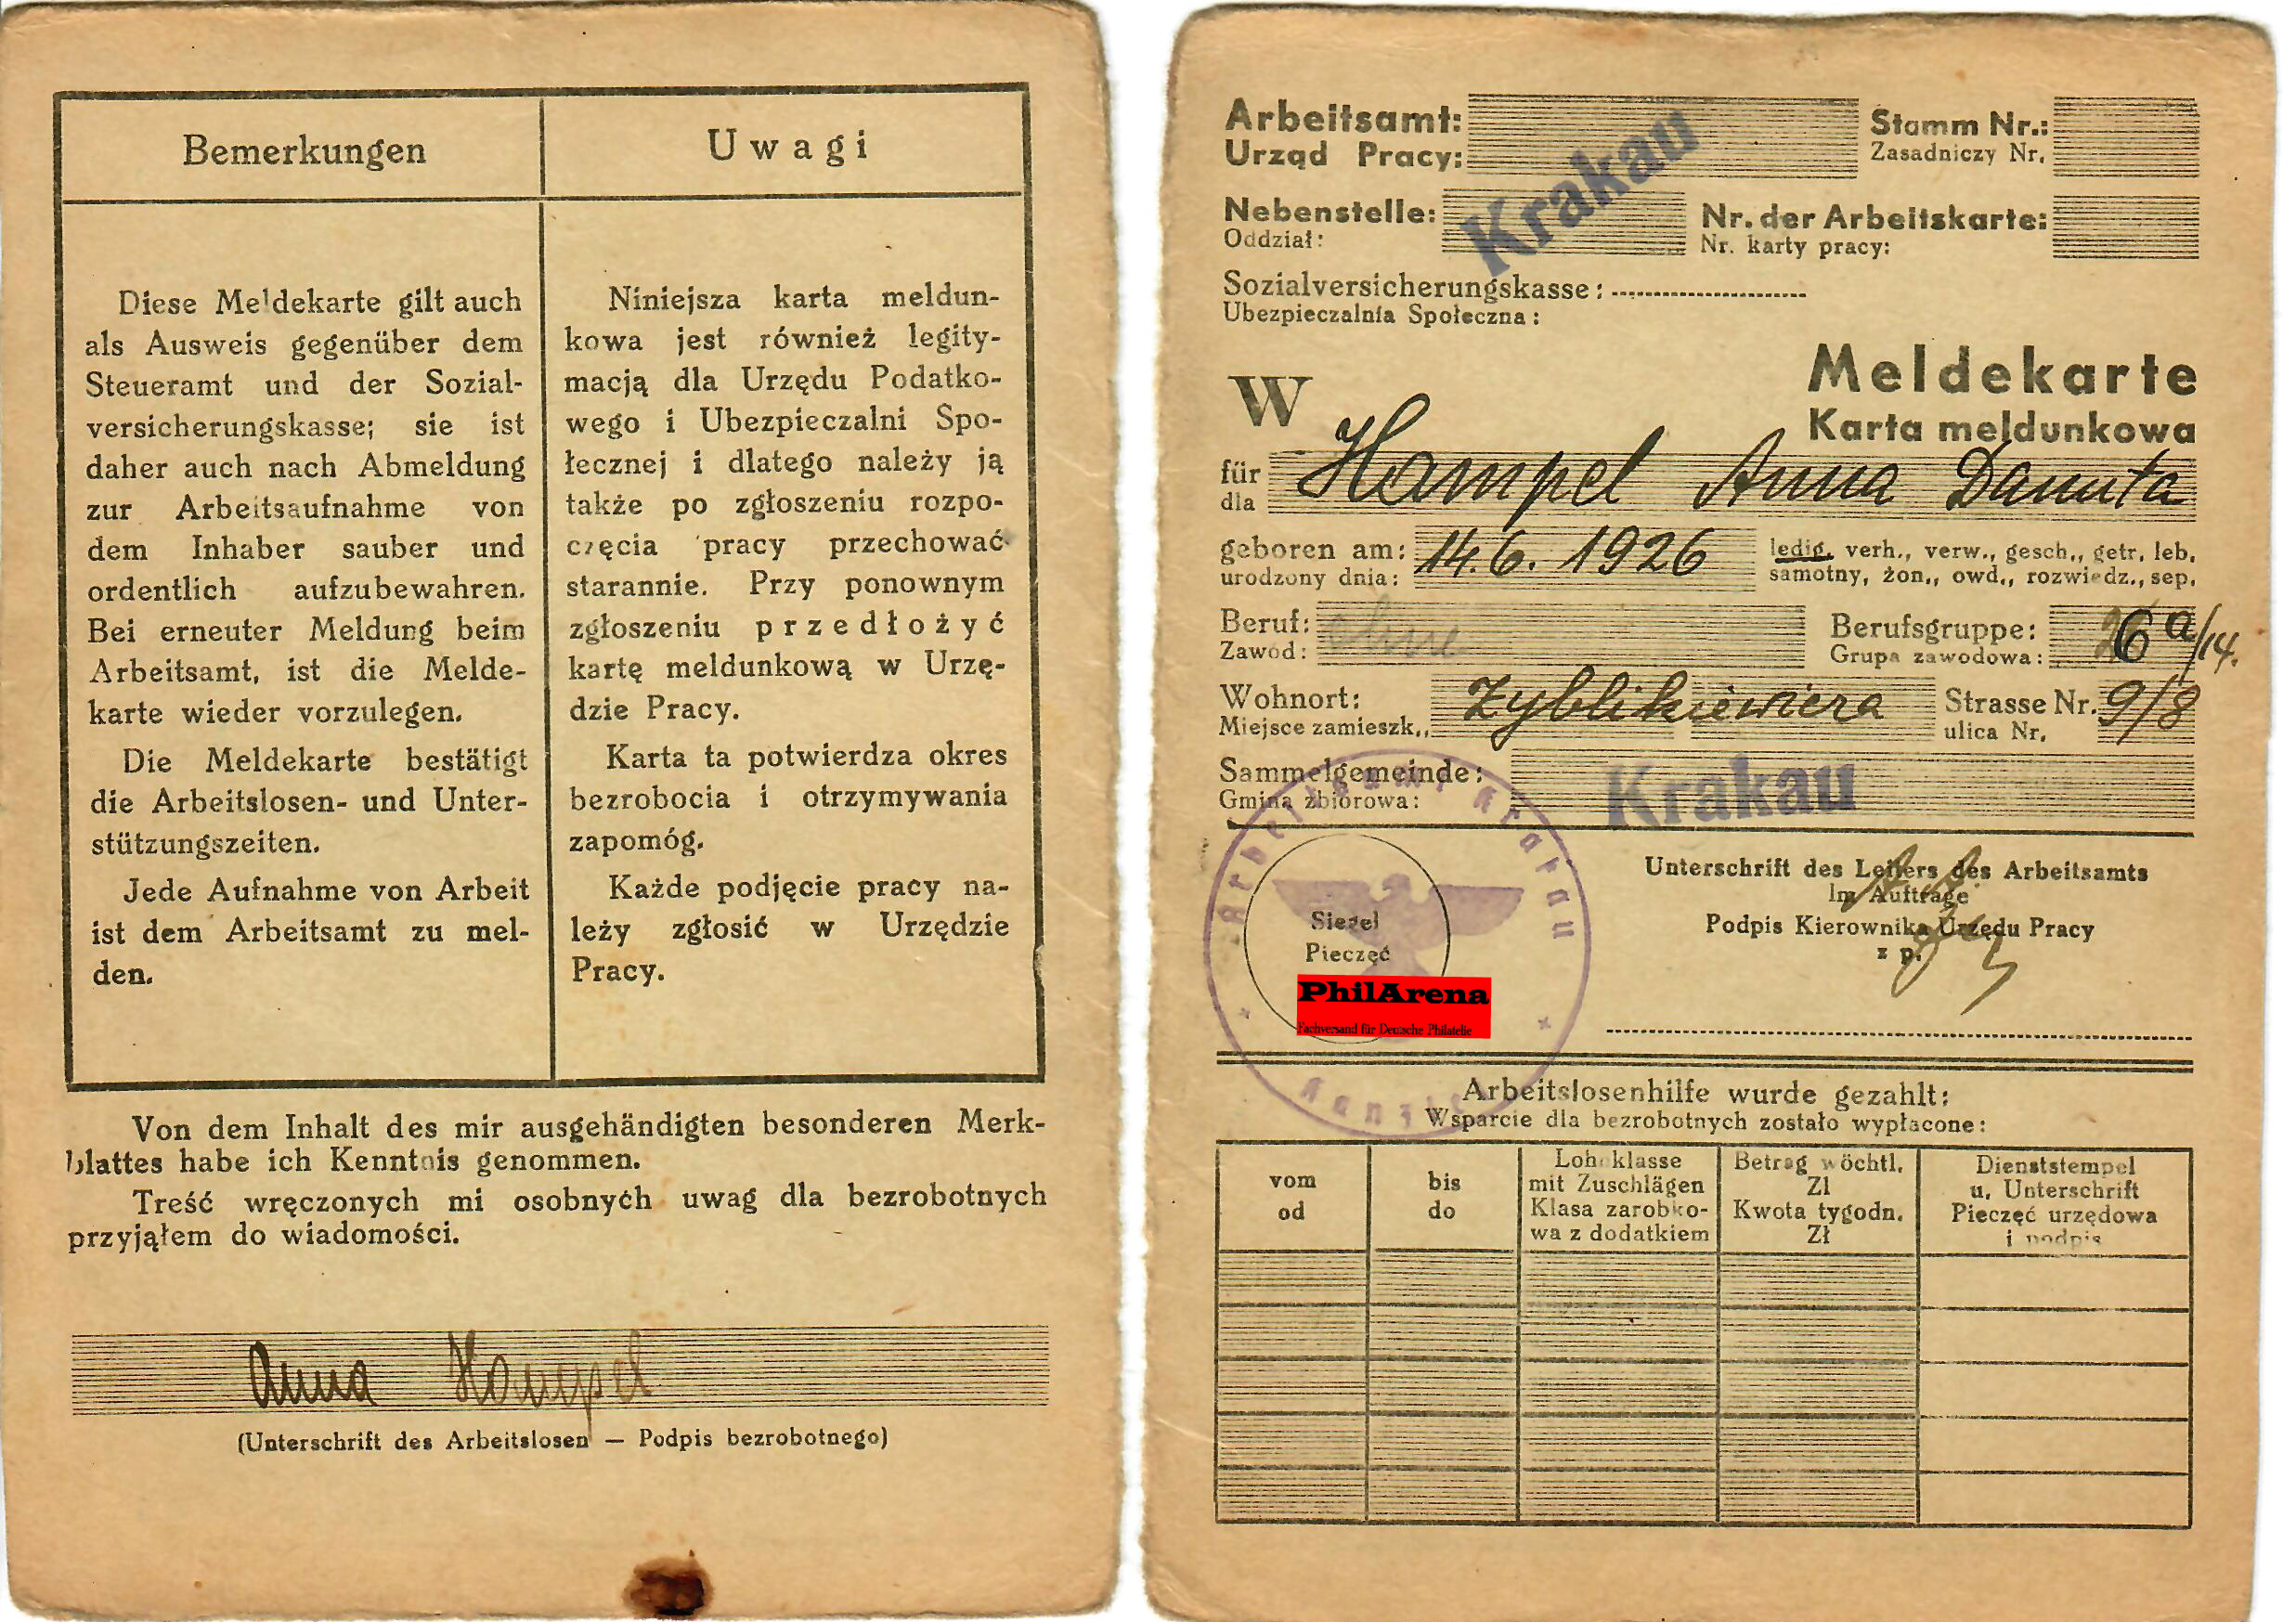 Bemerkungen
Uwagi
Diese Meldekarte gilt auch
als Ausweis gegenüber dem
Steueramt und der Sozial-
versicherungskasse; sie ist
daher auch nach Abmeldung
zur Arbeitsaufnahme von
dem Inhaber sauber und
ordentlich aufzubewahren.
Bei erneuter Meldung beim
Arbeitsamt, ist die Melde-
karte wieder vorzulegen.
Die Meldekarte bestätigt
die Arbeitslosen- und Unter-
stützungszeiten.
Jede Aufnahme von Arbeit
ist dem Arbeitsamt zu mel-
den.
Niniejsza karta meldun-
kowa jest również legity-
macją dla Urzędu Podatko-
wego i Ubezpieczalni Spo-
łecznej i dlatego należy ją
także po zgłoszeniu rozpo-
częcia pracy przechować
starannie. Przy ponownym
zgłoszeniu przedłożyć
kartę meldunkową w Urzę-
dzie Pracy.
Karta ta potwierdza okres
bezrobocia i otrzymywania
zapomóg.
Każde podjęcie pracy na-
leży zgłosić w Urzędzie
Pracy.
Von dem Inhalt des mir ausgehändigten besonderen Merk-
blattes habe ich Kenntnis genommen.
Treść wręczonych mi osobnych uwag dla bezrobotnych
przyjąłem do wiadomości.
Anna Hampel
(Unterschrift des Arbeitslosen — Podpis bezrobotnego)
Arbeitsamt:
Urząd Pracy:
Krakau
Stamm Nr.:
Zasadniczy Nr.
Nebenstelle:
Oddział:
Nr. der Arbeitskarte:
Nr. karty pracy:
Sozialversicherungskasse:
Ubezpieczalnia Społeczna:
W
Meldekarte
Karta meldunkowa
für Hampel Anna Danuta
dla
geboren am: 14. 6. 1926 ledig, verh., verw., gesch., getr. leb.
urodzony dnia: samotny, żon., owd., rozwiedz., sep.
Beruf: ohne
Zawód:
Berufsgruppe: 6a/14.
Grupa zawodowa:
Wohnort: Zyblikiewicza Strasse Nr. 9/8
Miejsce zamieszk., ulica Nr.
Sammelgemeinde: Krakau
Gmina zbiorowa:
Arbeitsamt Krakau
Kanzlei
Siegel
Pieczęć
PhilArena
Fachversand für Deutsche Philatelie
Unterschrift des Leiters des Arbeitsamts
Im Auftrage
Podpis Kierownika Urzędu Pracy
z p.
Arbeitslosenhilfe wurde gezahlt:
Wsparcie dla bezrobotnych zostało wypłacone:
vom
od
bis
do
Lohnklasse
mit Zuschlägen
Klasa zarobko-
wa z dodatkiem
Betrag wöchtl.
Zl
Kwota tygodn.
Zł
Dienststempel
u. Unterschrift
Pieczęć urzędowa
i podpis